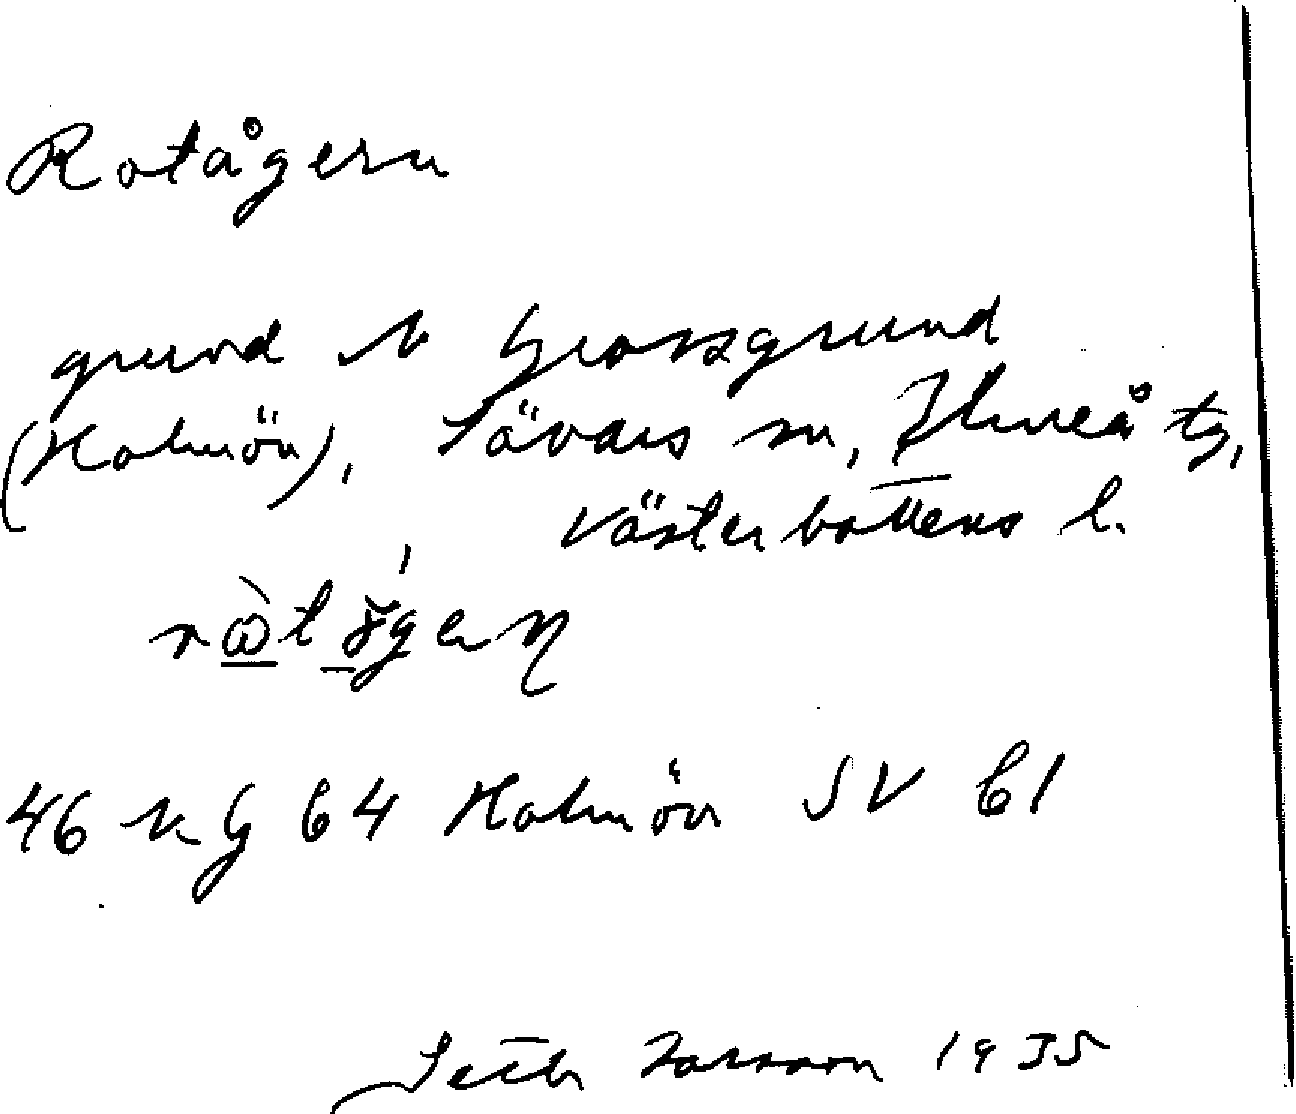 Rotågern
grund N Grossgrund
(Holmön), Sävars sn, Umeå tg,
Västerbottens l.
46 NG 64 Holmön SV 61
Seth Larsson 1935